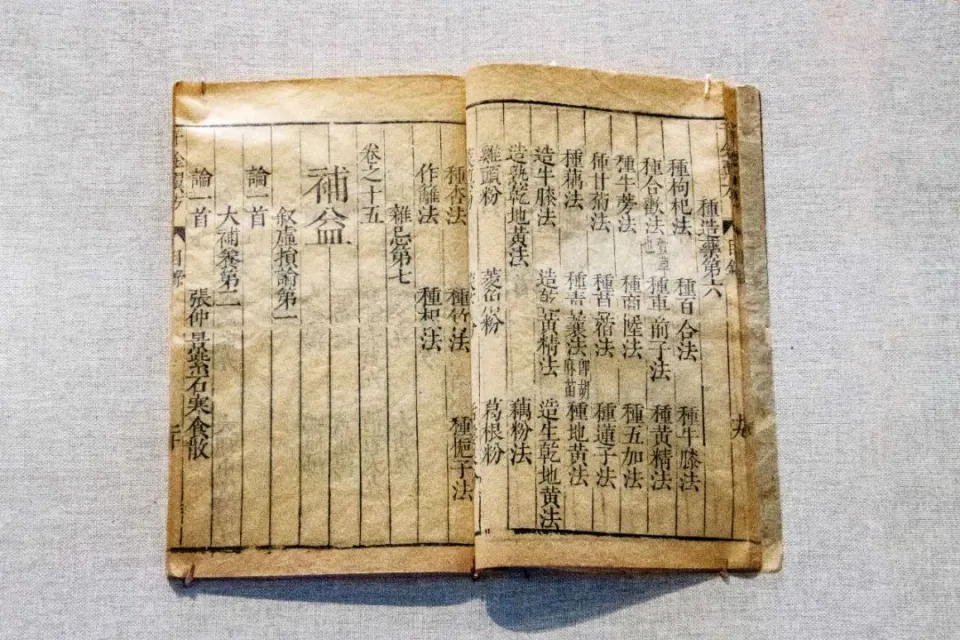 種造藥第六
種枸杞法 種百合法 種牛膝法
種合歡法 萱草也 種車前子法 種黃精法
種牛蒡法 種商陸法 種五加法
種甘菊法 種苜蓿法 種蓮子法
種藕法 種青蘘法 即胡麻苗 種地黃法
造牛膝法 造乾黃精法 造生乾地黃法
造熟乾地黃法 藕粉法
雞頭粉 菱角粉 葛根粉
種杏法 種竹法 種梔子法
作籬法 種枳法
雜忌第七
卷之十五
補益
敘虛損論第一
論一首
大補養第二
論一首 張仲景紫石寒食散